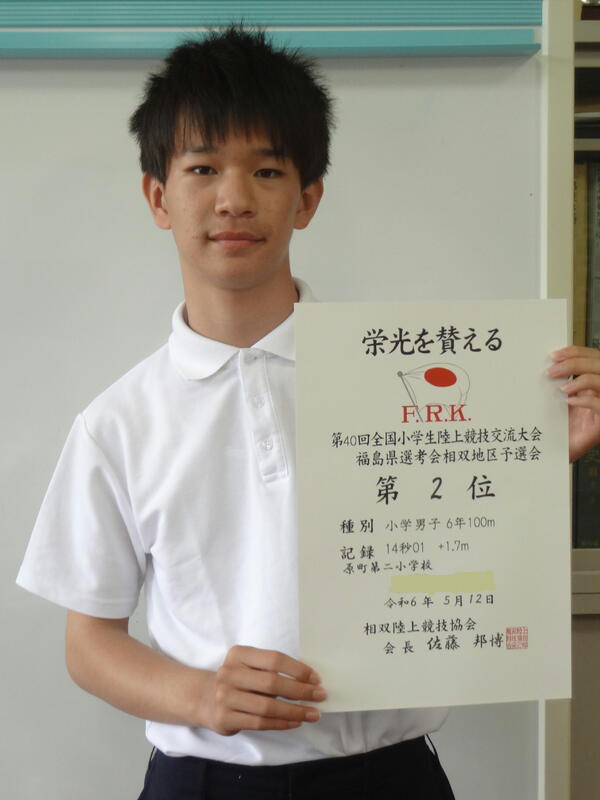 栄光を賛える
F.R.K.
第40回全国小学生陸上競技交流大会
福島県選考会相双地区予選会
第 2 位
種別 小学男子 6年100m
記録 14秒01 +1.7m
原町第二小学校
令和6年 5月12日
相双陸上競技協会
会長 佐藤 邦博